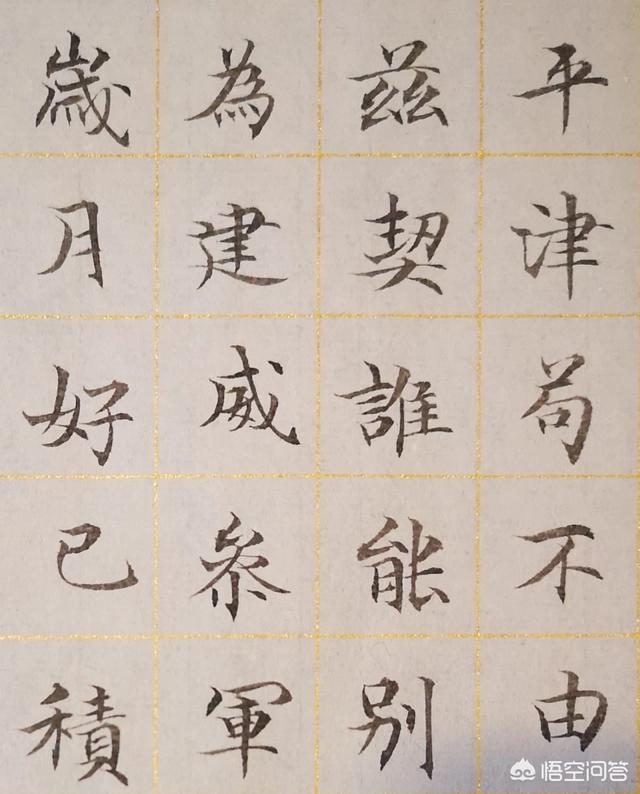 平津苟不由
兹契誰能別
為建威參軍
歲月好已積
悟空问答